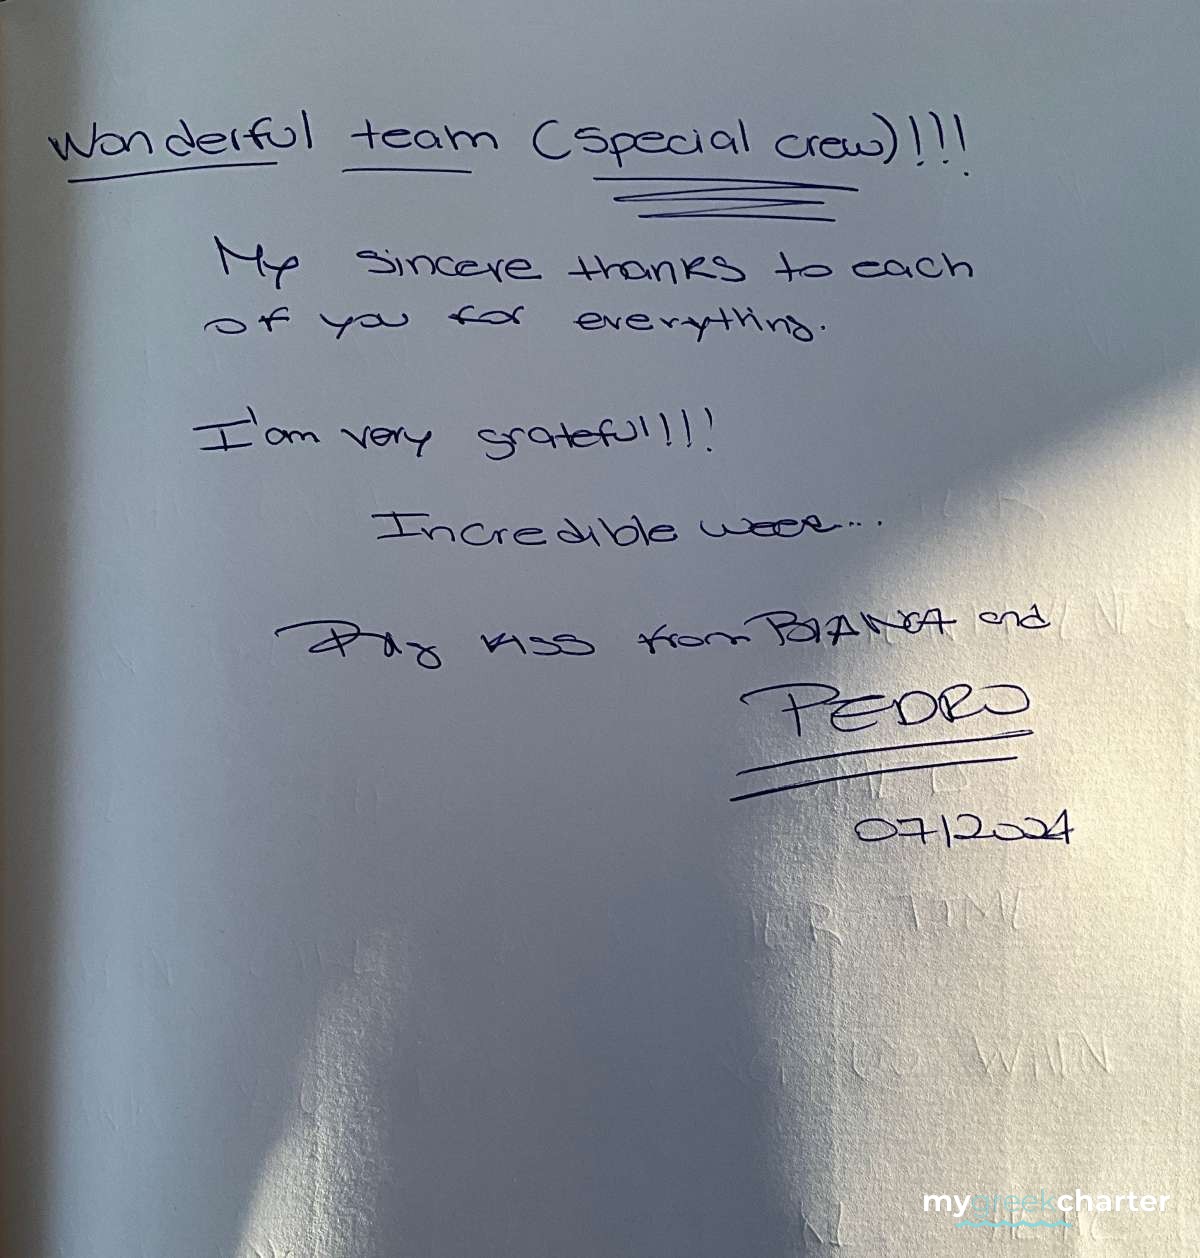 Wonderful team (special crew)!!!
My sincere thanks to each
of you for everything.
I'am very grateful!!!
Incredible week...
Big kiss from BIANCA and
PEDRO
07/2024
TIME
mygreekcharter